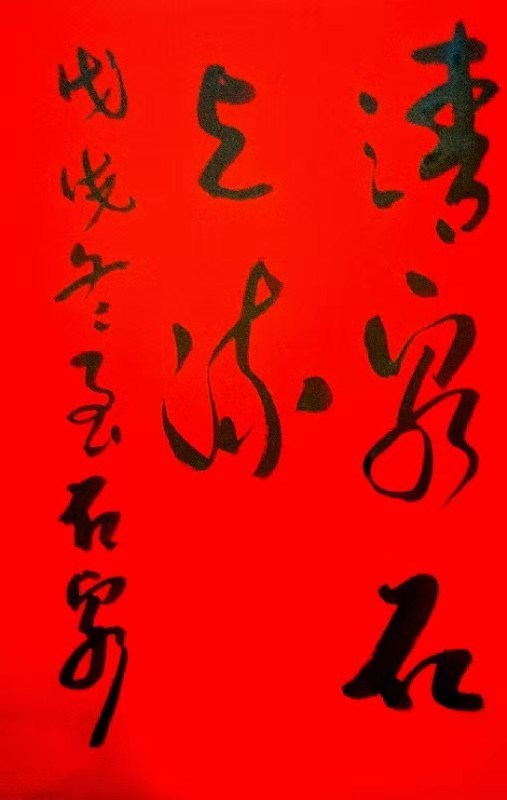 清泉石
上流
戊戌冬至石泉